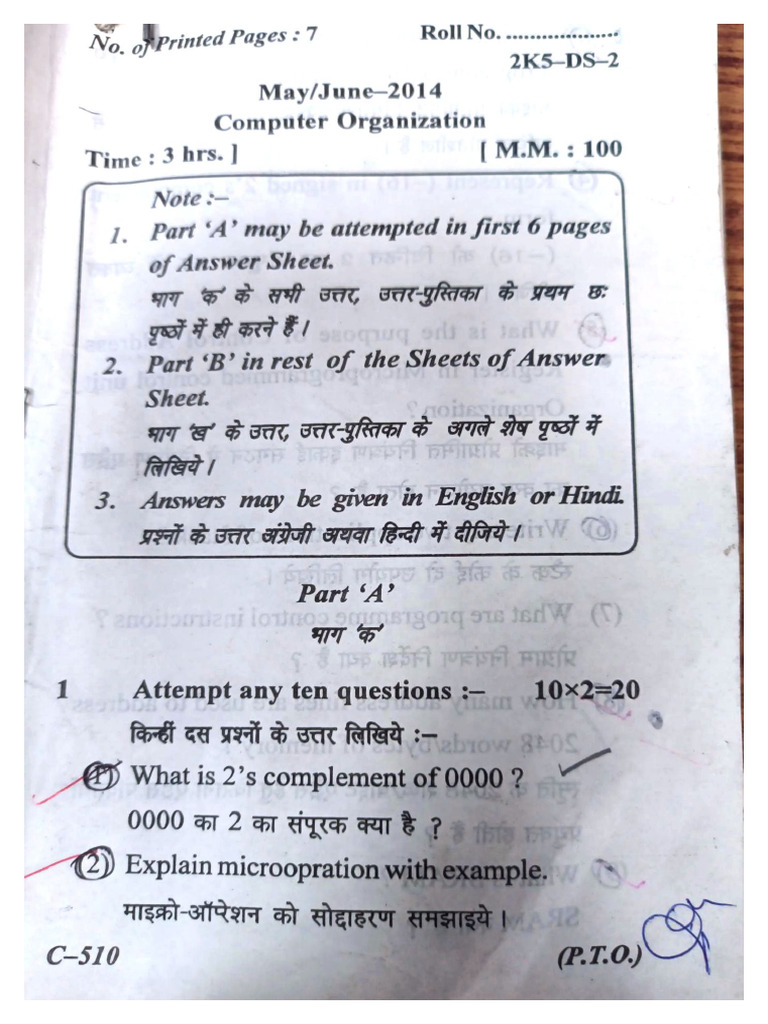 No. of Printed Pages : 7
Roll No. ...................
2K5–DS–2
May/June–2014
Computer Organization
Time : 3 hrs. ]
[ M.M. : 100
Note :–
1. Part ‘A’ may be attempted in first 6 pages
of Answer Sheet.
भाग ‘क’ के सभी उत्तर, उत्तर-पुस्तिका के प्रथम छः
पृष्ठों में ही करने हैं ।
2. Part ‘B’ in rest of the Sheets of Answer
Sheet.
भाग ‘ख’ के उत्तर, उत्तर-पुस्तिका के अगले शेष पृष्ठों में
लिखिये ।
3. Answers may be given in English or Hindi.
प्रश्नों के उत्तर अंग्रेजी अथवा हिन्दी में दीजिये ।
Part ‘A’
भाग ‘क’
1 Attempt any ten questions :– 10×2=20
किन्हीं दस प्रश्नों के उत्तर लिखिये :–
(1) What is 2’s complement of 0000 ?
0000 का 2 का संपूरक क्या है ?
(2) Explain microopration with example.
माइक्रो-ऑपरेशन को सोद्दाहरण समझाइये ।
C–510
(P.T.O.)